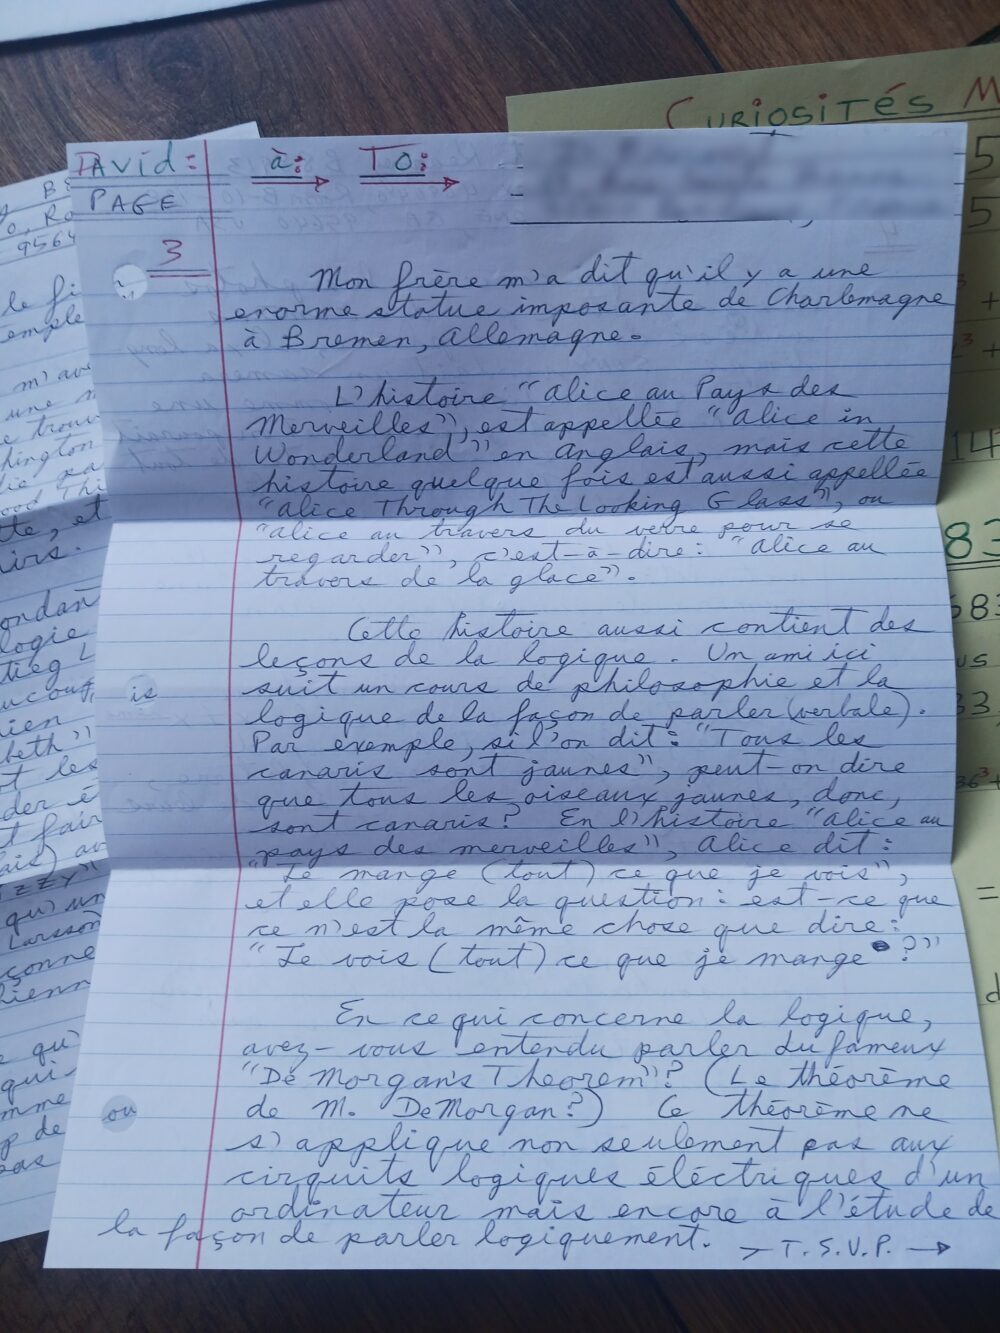 David: à: To:
PAGE
3
Mon frère m'a dit qu'il y a une
enorme statue imposante de Charlemagne
à Bremen, Allemagne.
L'histoire "Alice au Pays des
Merveilles", est appellée "Alice in
Wonderland" en Anglais, mais cette
histoire quelque fois est aussi appellée
"Alice Through The Looking Glass", ou
"Alice au travers du verre pour se
regarder", c'est-à-dire: "Alice au
travers de la glace".
Cette histoire aussi contient des
leçons de la logique. Un ami ici
suit un cours de philosophie et la
logique de la façon de parler (verbale).
Par exemple, si l'on dit: "Tous les
canaris sont jaunes", peut-on dire
que tous les oiseaux jaunes, donc,
sont canaris? En l'histoire "Alice au
pays des merveilles", Alice dit:
"Je mange (tout) ce que je vois",
et elle pose la question: est-ce que
ce n'est la même chose que dire:
"Je vois (tout) ce que je mange ?"
En ce qui concerne la logique,
avez-vous entendu parler du fameux
"De Morgan's Theorem"? (Le théorème
de M. DeMorgan?) Ce théorème ne
s'applique non seulement pas aux
circuits logiques éléctriques d'un
ordinateur mais encore à l'étude de
la façon de parler logiquement. > T.S.V.P. →
is
ou
CURIOSITÉS M
5
5
83
683
us
33
=
9564
le fi
emple
m'av
une
hington
irs.
ondan
logie
tieg L
hien
beth"
t les
t fair
qu'un
Larsson
hienn
qui
mme
p de
pas